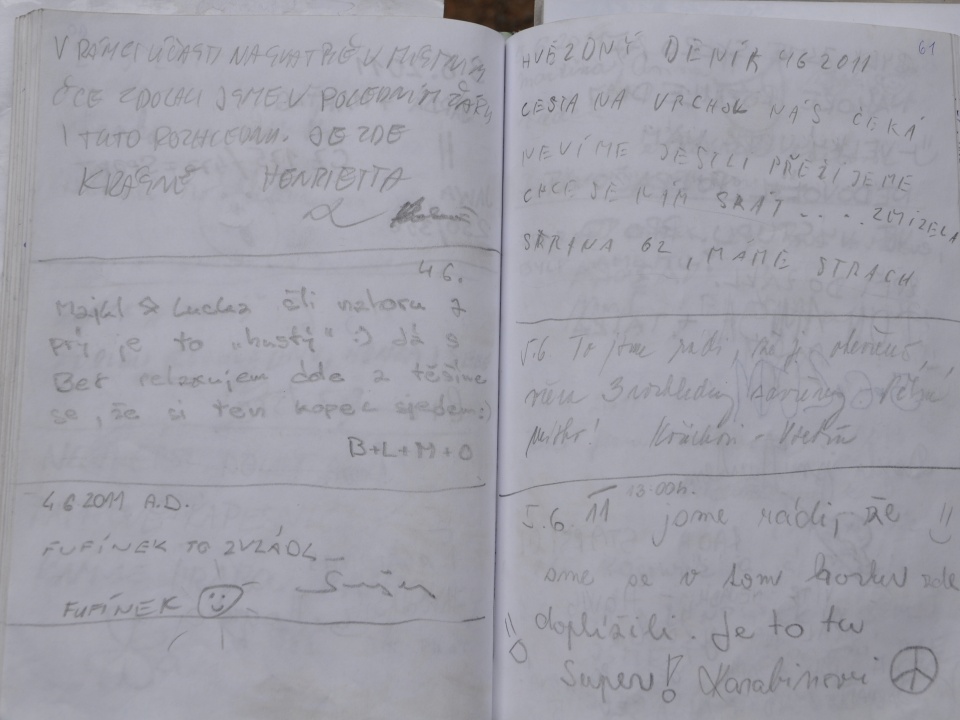 V RÁMCI ÚČASTI NA SVATBĚ V
ČCE ZDOLALI JSME V POLEDNÍM ŽÁRU
I TUTO ROZHLEDNU. JE ZDE
KRÁSNĚ HENRIETTA
4 6.
Majkl & Lucka šli nahoru a
prý je to "hustý" :) Já s
Bet relaxujem dole a těšíme
se, že si ten kopec sjedem:)
B+L+M+O
4 6 2011 A.D.
FUFÍNEK TO ZVLÁDL
FUFÍNEK
61
HVĚZDNÝ DENÍK 4 6 2011
CESTA NA VRCHOL NÁS ČEKÁ
NEVÍME JESTLI PŘEŽIJEME
CHCE SE NÁM SRÁT . . . . . ZMIZELA
STRANA 62, MÁME STRACH
5.6. To jsme rádi, že je otevřeno
3 rozhledny
místo!
13.00h.
5.6. 11 jsme rádi, že
sme se v tom horku zde
doplížili. Je to tu
Super! Karabinovi